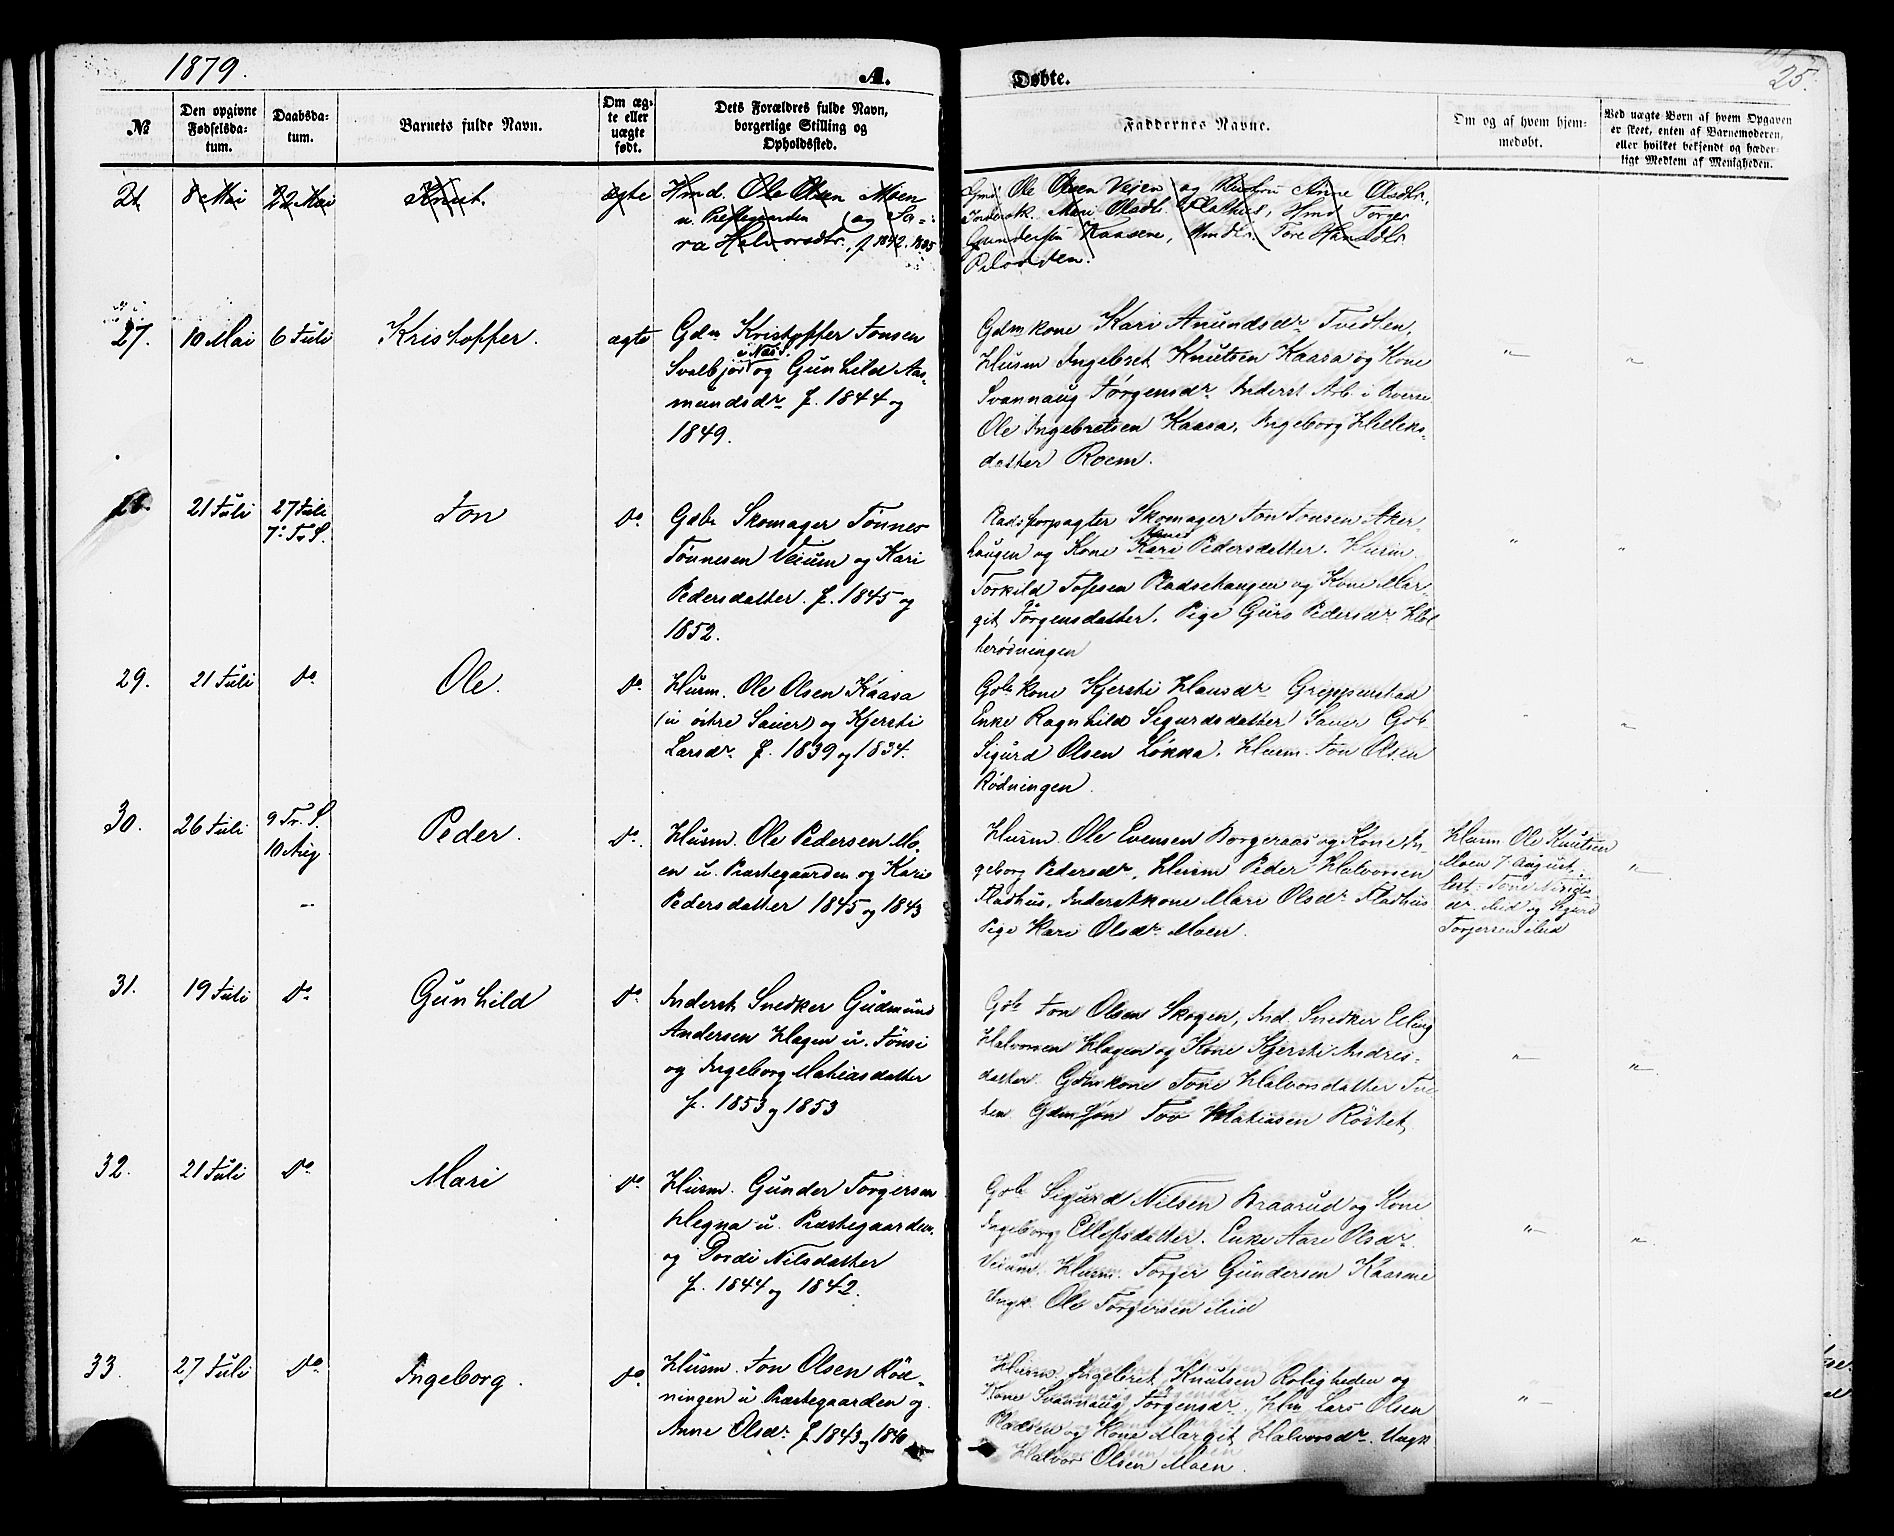 1879.
A.
Døbte.
25.
№
Den opgivne
Fødselsda-
tum.
Daabsda-
tum.
Barnets fulde Navn.
Om æg-
te eller
uægte
født.
Dets Forældres fulde Navn,
borgerlige Stilling og
Opholdssted.
Faddernes Navne.
Om og af hvem hjem-
medøbt.
Ved uægte Børn af hvem Opgaven
er skeet, enten af Barnemoderen,
eller hvilket bekjendt og hæder-
ligt Medlem af Menigheden.
21.
8 Mai
22 Mai
Knut.
ægte
Hmd. Ole Olsen Moen
u. Prestegaarden og Sa-
ra Halvorsdtr., f 1842.
Gmd Ole Olsen Vejen og Hustru Anne Olsdtr,
Inderstk. Mari Olsdtr. Fladhus, Hmd Torger
Gundersen Kaasene, Tore Hansdtr
27.
10 Mai
6 Juli
Kristoffer.
ægte
Gdm Kristoffer Jonsen
i Næs.
Svalbjør og Gunhild Aas-
mundsdr f. 1844 og
1849.
Gdmkone Kari Anundsdr Tvedten,
Husm Ingebret Knutsen Kaasa og Kone
Svannaug Jørgensdr Inderst Arb. i
Ole Ingebretsen Kaasa, Ingeborg
datter Roem.
"
"
28.
21 Juli
27 Juli
7: Tr. S.
Jon
Do
Gdbr Skomager Tønnes
Tønnesen Veium og Kari
Pedersdatter. f. 1845 og
1852.
Pladsforpagter Skomager Jon Jonsen Aker-
haugen og Kone Kari Pedersdatter. Husm.
Torkild Tofsen Pladsehaugen og Kone Mar-
git Jørgensdatter, Pige Guro Pedersdr Hol-
terødningen
"
"
29.
21 Juli
Do
Ole.
Do.
Husm. Ole Olsen Kaasa
(u østre Sauer) og Kjersti
Larsdr f. 1839 og 1834.
Gbr kone Kjersti Hansdr Gripperstad
Enke Ragnhild Sigurdsdatter Sauer Gbr
Sigurd Olsen Løkka, Husm. Jon Olsen
Rødningen.
"
"
30.
26 Juli
9 Tr. S.
10 Aug.
Peder.
Do.
Husm. Ole Pedersen Mo-
en u. Præstegaarden og Kari
Pedersdatter 1845 og 1843
Husm. Ole Evensen Borgeraas og Kone In-
geborg Pedersdr, Husm Peder Halvorsen
Fladhus, Inderstkone Mari Olsdr Fladhus
Pige Kari Olsdr Moen.
Husm Ole Knutsen
Moen 7 August,
dr. ibid og Sigurd
Torjersen ibid
"
31.
19 Juli
Do
Gunhild
Do
Inderst Snedker Gudmund
Andersen Hagen u. Tønsi
og Ingeborg Mathiasdatter
f. 1853 og 1853
Gbr Jon Olsen Skogen, Ind. Snedker Elling
Halvorsen Hagen og Kone Kjersti Andres-
datter. Gdmkone Tone Halvorsdatter Tve-
ten. Gdmsøn Tov Mathiasen Röstet.
"
"
32.
21 Juli
Do
Mari
Do
Husm. Gunder Torgersen
Hegna u. Præstegaarden
og Dordi Nilsdatter
f. 1844 og 1842.
Gbr Sigurd Nilsen Braarud og Kone
Ingeborg Ellefsdatter. Enke Aase Olsdr
Veium. Husm. Torger Gundersen Kaasene
Ungk. Ole Torgersen ibid
"
"
33.
27 Juli
Do
Ingeborg.
Do
Husm. Jon Olsen Rød-
ningen u Præstegaarden og
Anne Olsdr f 1843 og 1840
Husm. Ingebret Knutsen Roligheden og
Kone Svannaug Jørgensdr, Hm Lars Olsen
Pladsen og Kone Margit Halvorsdr. Ungk
Halvor Olsen Moen.
"
"